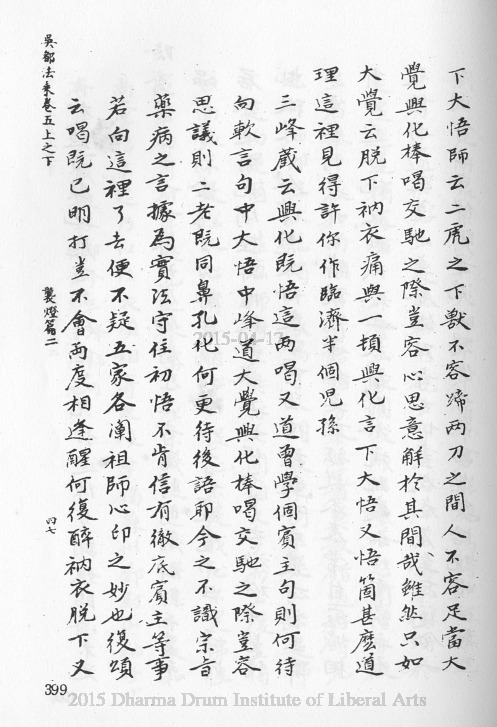 下大悟師云二虎之下獸不容蹄兩刀之間人不容足當大
覺興化棒喝交馳之際豈容心思意解於其間哉雖然只如
大覺云脫下衲衣痛與一頓興化言下大悟又悟箇甚麼道
理這裡見得許你作臨濟半個兒孫
三峰藏云興化既悟這兩喝又道曾學個賓主句則何待
向軟言句中大悟中峰道大覺興化棒喝交馳之際豈容
思議則二老既同鼻孔化何更待後語耶今之不識宗旨
藥病之言據為實法守住初悟不肯信有徹底賓主等事
若向這裡了去便不疑五家各闡祖師心印之妙也復頌
云喝既已明打豈不會兩度相逢醒何復醉衲衣脫下又
吳都法乘卷五上之下
襲燈篇二
四七
399
2015-04-13
2015 Dharma Drum Institute of Liberal Arts